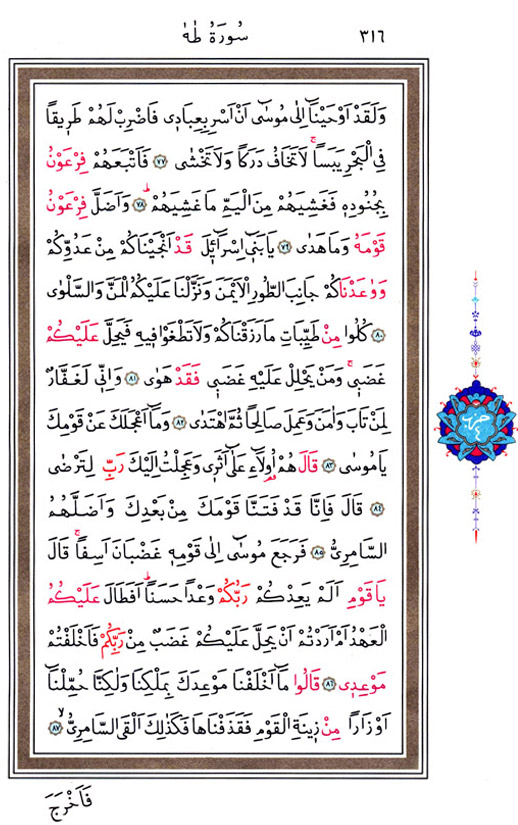 ٣١٦ سُورَةُ طٰهٰ
وَلَقَدْ اَوْحَيْنَٓا اِلٰى مُوسٰٓى اَنْ اَسْرِ بِعِبَادٖى فَاضْرِبْ لَهُمْ طَرٖيقًا
فِى الْبَحْرِ يَبَساًۚ لَا تَخَافُ دَرَكًا وَلَا تَخْشٰى ﴿٧٧﴾ فَاَتْبَعَهُمْ فِرْعَوْنُ
بِجُنُودِهٖ فَغَشِيَهُمْ مِنَ الْيَمِّ مَا غَشِيَهُمْؕ ﴿٧٨﴾ وَاَضَلَّ فِرْعَوْنُ
قَوْمَهُ وَمَا هَدٰى ﴿٧٩﴾ يَا بَنٖٓى اِسْرَٓائٖلَ قَدْ اَنْجَيْنَاكُمْ مِنْ عَدُوِّكُمْ
وَوٰعَدْنَاكُمْ جَانِبَ الطُّورِ الْاَيْمَنَ وَنَزَّلْنَا عَلَيْكُمُ الْمَنَّ وَالسَّلْوٰى
﴿٨٠﴾ كُلُوا مِنْ طَيِّبَاتِ مَا رَزَقْنَاكُمْ وَلَا تَطْغَوْا فٖيهِ فَيَحِلَّ عَلَيْكُمْ
غَضَبٖىۚ وَمَنْ يَحْلِلْ عَلَيْهِ غَضَبٖى فَقَدْ هَوٰى ﴿٨١﴾ وَاِنّٖى لَغَفَّارٌ
لِمَنْ تَابَ وَاٰمَنَ وَعَمِلَ صَالِحًا ثُمَّ اهْتَدٰى ﴿٨٢﴾ وَمَٓا اَعْجَلَكَ عَنْ قَوْمِكَ
يَا مُوسٰى ﴿٨٣﴾ قَالَ هُمْ اُولَٓاءِ عَلٰٓى اَثَرٖى وَعَجِلْتُ اِلَيْكَ رَبِّ لِتَرْضٰى
﴿٨٤﴾ قَالَ فَاِنَّا قَدْ فَتَنَّا قَوْمَكَ مِنْ بَعْدِكَ وَاَضَلَّهُمُ
السَّامِرِىُّ ﴿٨٥﴾ فَرَجَعَ مُوسٰٓى اِلٰى قَوْمِهٖ غَضْبَانَ اَسِفًاۚ قَالَ
يَا قَوْمِ اَلَمْ يَعِدْكُمْ رَبُّكُمْ وَعْدًا حَسَنًاؕ اَفَطَالَ عَلَيْكُمُ
الْعَهْدُ اَمْ اَرَدْتُمْ اَنْ يَحِلَّ عَلَيْكُمْ غَضَبٌ مِنْ رَبِّكُمْ فَاَخْلَفْتُمْ
مَوْعِدٖى ﴿٨٦﴾ قَالُوا مَٓا اَخْلَفْنَا مَوْعِدَكَ بِمَلْكِنَا وَلٰكِنَّا حُمِّلْنَٓا
اَوْزَارًا مِنْ زٖينَةِ الْقَوْمِ فَقَذَفْنَاهَا فَكَذٰلِكَ اَلْقَى السَّامِرِىُّۙ ﴿٨٧﴾
فَاَخْرَجَ
حزب
٤